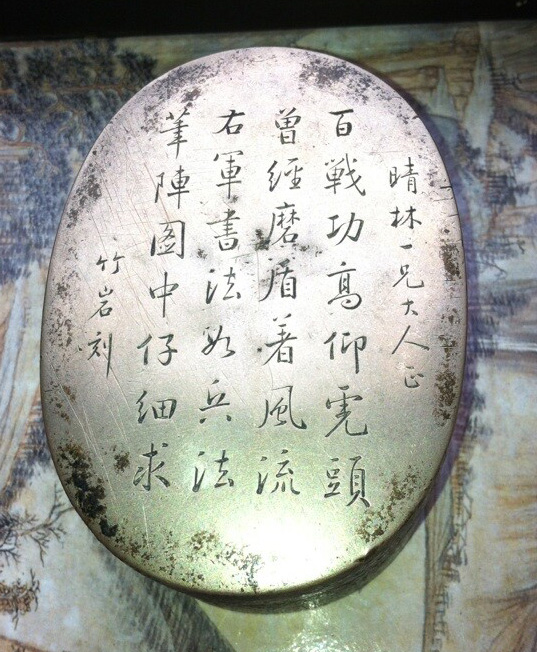 晴林一兄大人正
百戰功高仰虎頭
曾經磨盾着風流
右軍書法如兵法
筆陣图中仔細求
竹岩刻